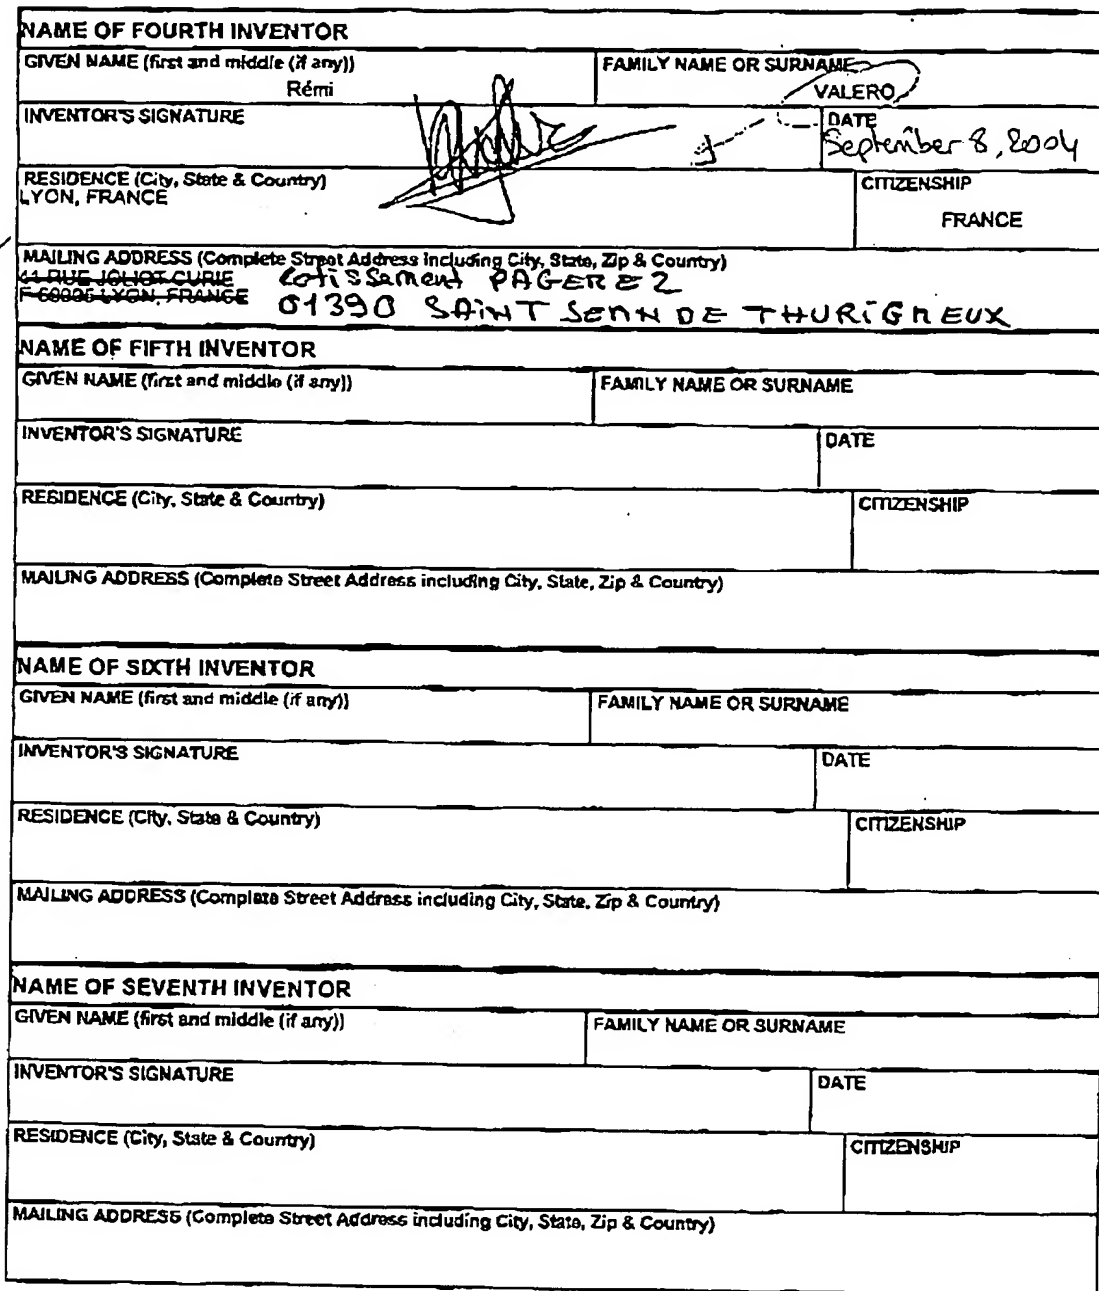 NAME OF FOURTH INVENTOR
GIVEN NAME (first and middle (if any))
Rémi
FAMILY NAME OR SURNAME
VALERO
INVENTOR'S SIGNATURE
DATE
September 8, 2004
RESIDENCE (City, State & Country)
LYON, FRANCE
CITIZENSHIP
FRANCE
MAILING ADDRESS (Complete Street Address including City, State, Zip & Country)
41 RUE JOLIOT CURIE
F-69005 LYON, FRANCE
Lotissement PAGERE 2
01390 SAINT JEAN DE THURIGNEUX
NAME OF FIFTH INVENTOR
GIVEN NAME (first and middle (if any))
FAMILY NAME OR SURNAME
INVENTOR'S SIGNATURE
DATE
RESIDENCE (City, State & Country)
CITIZENSHIP
MAILING ADDRESS (Complete Street Address including City, State, Zip & Country)
NAME OF SIXTH INVENTOR
GIVEN NAME (first and middle (if any))
FAMILY NAME OR SURNAME
INVENTOR'S SIGNATURE
DATE
RESIDENCE (City, State & Country)
CITIZENSHIP
MAILING ADDRESS (Complete Street Address including City, State, Zip & Country)
NAME OF SEVENTH INVENTOR
GIVEN NAME (first and middle (if any))
FAMILY NAME OR SURNAME
INVENTOR'S SIGNATURE
DATE
RESIDENCE (City, State & Country)
CITIZENSHIP
MAILING ADDRESS (Complete Street Address including City, State, Zip & Country)